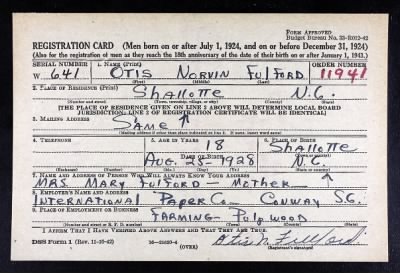 FORM APPROVED
Budget Bureau No. 33-R012-42
REGISTRATION CARD—(Men born on or after July 1, 1924, and on or before December 31, 1924)
(Also for the registration of men as they reach the 18th anniversary of the date of their birth on or after January 1, 1943.)
SERIAL NUMBER 1. NAME (Print) ORDER NUMBER
W 641 OTIS NORVIN FULFORD 11941
(First) (Middle) (Last)
2. PLACE OF RESIDENCE (Print)
Shallotte N.C.
(Number and street) (Town, township, village, or city) (County) (State)
[THE PLACE OF RESIDENCE GIVEN ON LINE 2 ABOVE WILL DETERMINE LOCAL BOARD
JURISDICTION; LINE 2 OF REGISTRATION CERTIFICATE WILL BE IDENTICAL]
3. MAILING ADDRESS
SAME
[Mailing address if other than place indicated on line 2. If same, insert word same]
4. TELEPHONE 5. AGE IN YEARS 6. PLACE OF BIRTH
18 Shallotte
DATE OF BIRTH
AUG. 25- 1928 N.C.
(Exchange) (Number) (Mo.) (Day) (Yr.) (State or country)
7. NAME AND ADDRESS OF PERSON WHO WILL ALWAYS KNOW YOUR ADDRESS
MRS. MARY FULFORD - MOTHER
8. EMPLOYER'S NAME AND ADDRESS
INTERNATIONAL PAPER CO. CONWAY S.C.
9. PLACE OF EMPLOYMENT OR BUSINESS
FARMING - Pulpwood
(Number and street or R. F. D. number) (Town) (County) (State)
I AFFIRM THAT I HAVE VERIFIED ABOVE ANSWERS AND THAT THEY ARE TRUE.
DSS Form 1 (Rev. 11-16-42) (OVER) Otis N Fulford
(Registrant's signature)